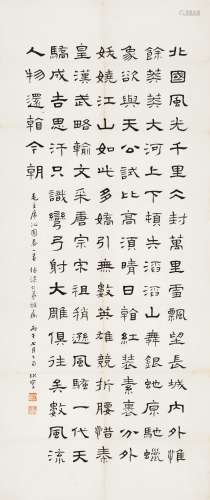 北國風光千里冰封萬里雪飄望長城内外惟
餘莽莽大河上下頓失滔滔山舞銀蛇原馳蠟
象欲與天公試比高須晴日看紅裝素裹分外
妖嬈江山如此多嬌引無數英雄競折腰惜秦
皇漢武略輸文采唐宗宋祖稍遜風騷一代天
驕成吉思汗只識彎弓射大雕俱往矣數風流
人物還看今朝
毛主席沁園春一首